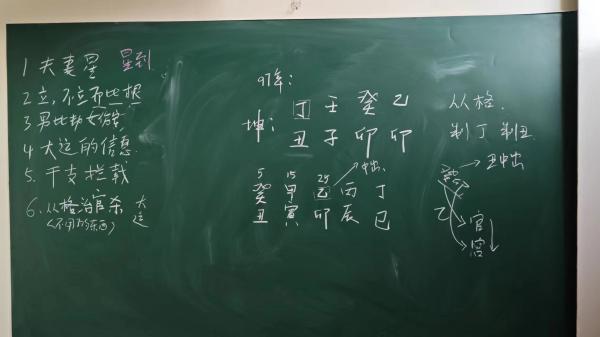 1 夫妻星 星到
2 立,不立看比根
3 男比劫女伤官
4 大运的信息
5. 干支拦截
6. 从格治官杀 大运
(不用的东西)
97年:
坤: 丁 壬 癸 乙
丑 子 卯 卯
5 15 25
癸 甲 乙 丙 丁
丑 寅 卯 辰 巳
从格.
制丁 制丑
乙
官
宫